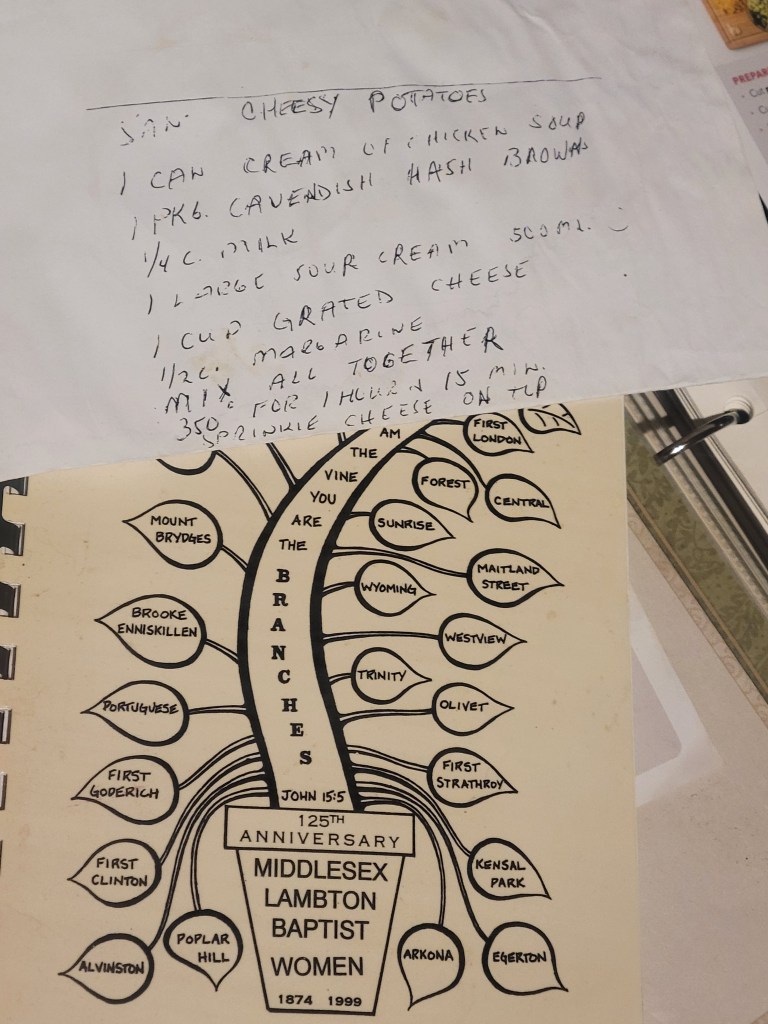 JAN CHEESY POTATOES
1 CAN CREAM OF CHICKEN SOUP
1 PKG. CAVENDISH HASH BROWNS
1/4 C. MILK
1 LARGE SOUR CREAM 500 ML.
1 CUP GRATED CHEESE
1/2 C. MARGARINE
MIX ALL TOGETHER
350 FOR 1 HOUR N 15 MIN.
SPRINKLE CHEESE ON TOP
PREPAR
AM
THE
VINE
YOU
ARE
THE
BRANCHES
JOHN 15:5
FIRST
LONDON
FOREST
CENTRAL
SUNRISE
MAITLAND
STREET
WYOMING
WESTVIEW
TRINITY
OLIVET
FIRST
STRATHROY
KENSAL
PARK
EGERTON
ARKONA
MOUNT
BRYDGES
BROOKE
ENNISKILLEN
PORTUGUESE
FIRST
GODERICH
FIRST
CLINTON
ALVINSTON
POPLAR
HILL
125TH
ANNIVERSARY
MIDDLESEX
LAMBTON
BAPTIST
WOMEN
1874 1999